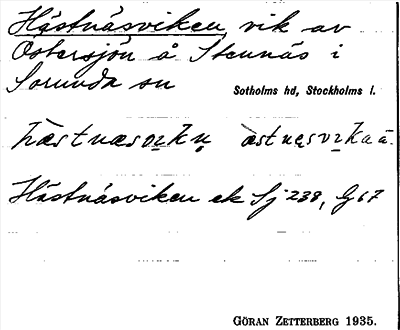 Hästnäsviken, vik av
Östersjön å Stennäs i
Sorunda sn
Sotholms hd, Stockholms l.
Hästnäsviken ek Sj 238, G 67
GÖRAN ZETTERBERG 1935.